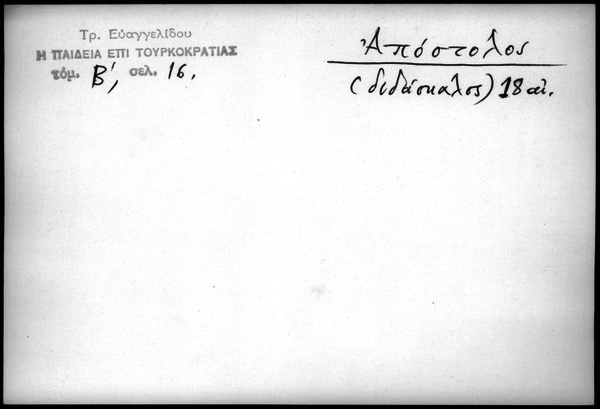 Τρ. Εὐαγγελίδου
Η ΠΑΙΔΕΙΑ ΕΠΙ ΤΟΥΡΚΟΚΡΑΤΙΑΣ
τόμ. Β΄, σελ. 16.
Ἀπόστολος
(διδάσκαλος) 18 αἰ.